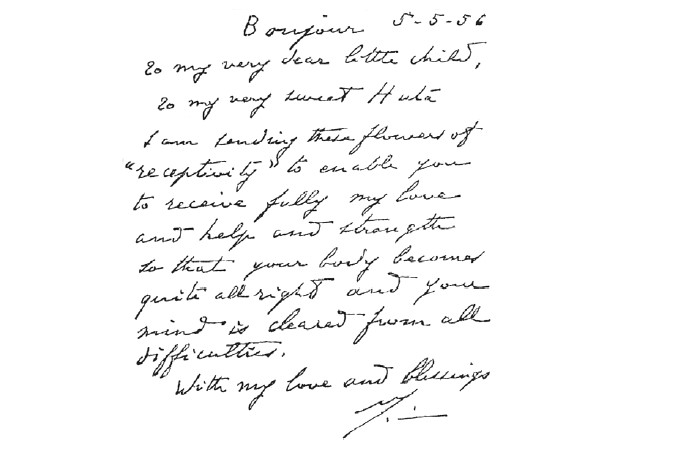 Bonjour 5-5-56
to my very dear little child,
to my very sweet Huta
I am sending these flowers of
"receptivity" to enable you
to receive fully my love
and help and strength
so that your body becomes
quite all right and your
mind is cleared from all
difficulties.
With my love and blessings